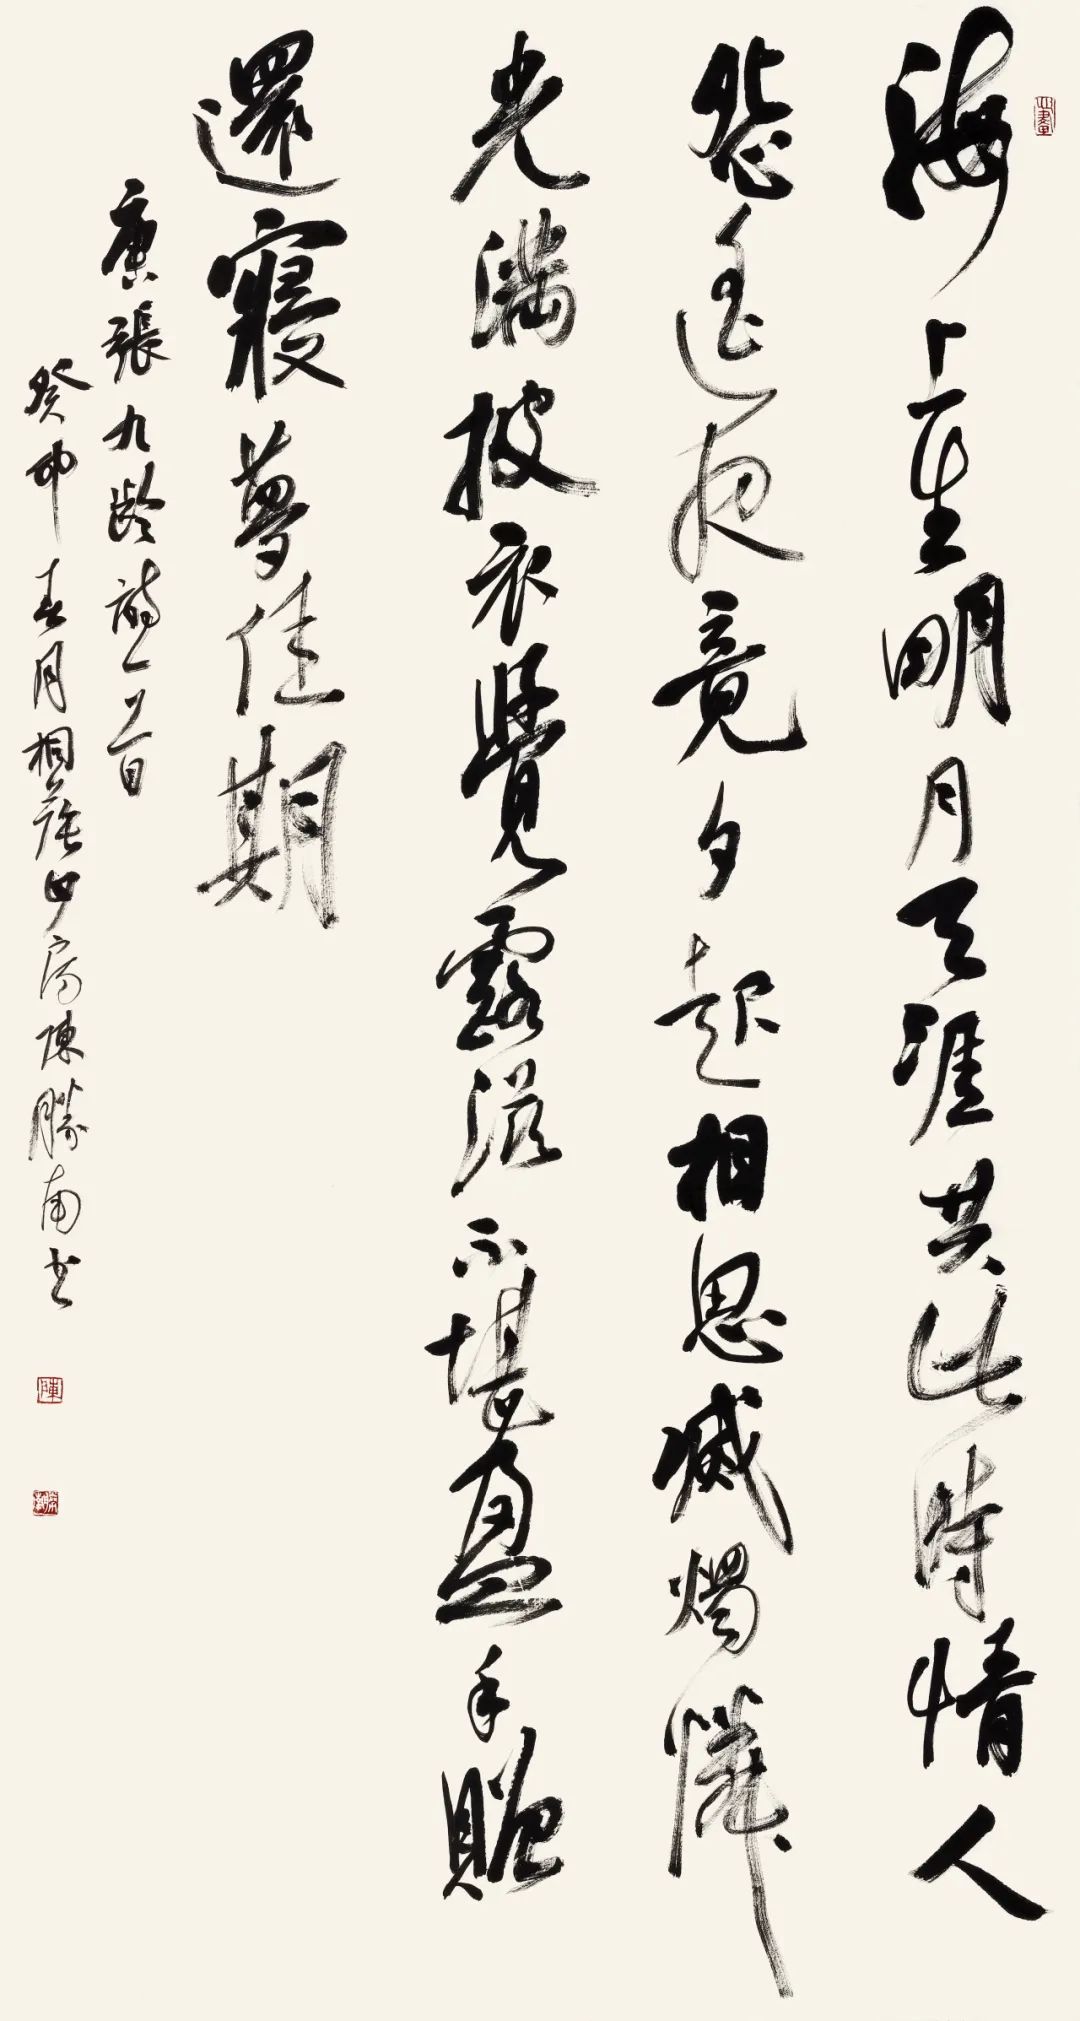 海上生明月天涯共此时情人
怨遥夜竟夕起相思滅燭憐
光满披衣覺露滋不堪盈手贈
還寢夢佳期
唐張九齡詩一首
癸卯春月桐蔭山房陳勝南书